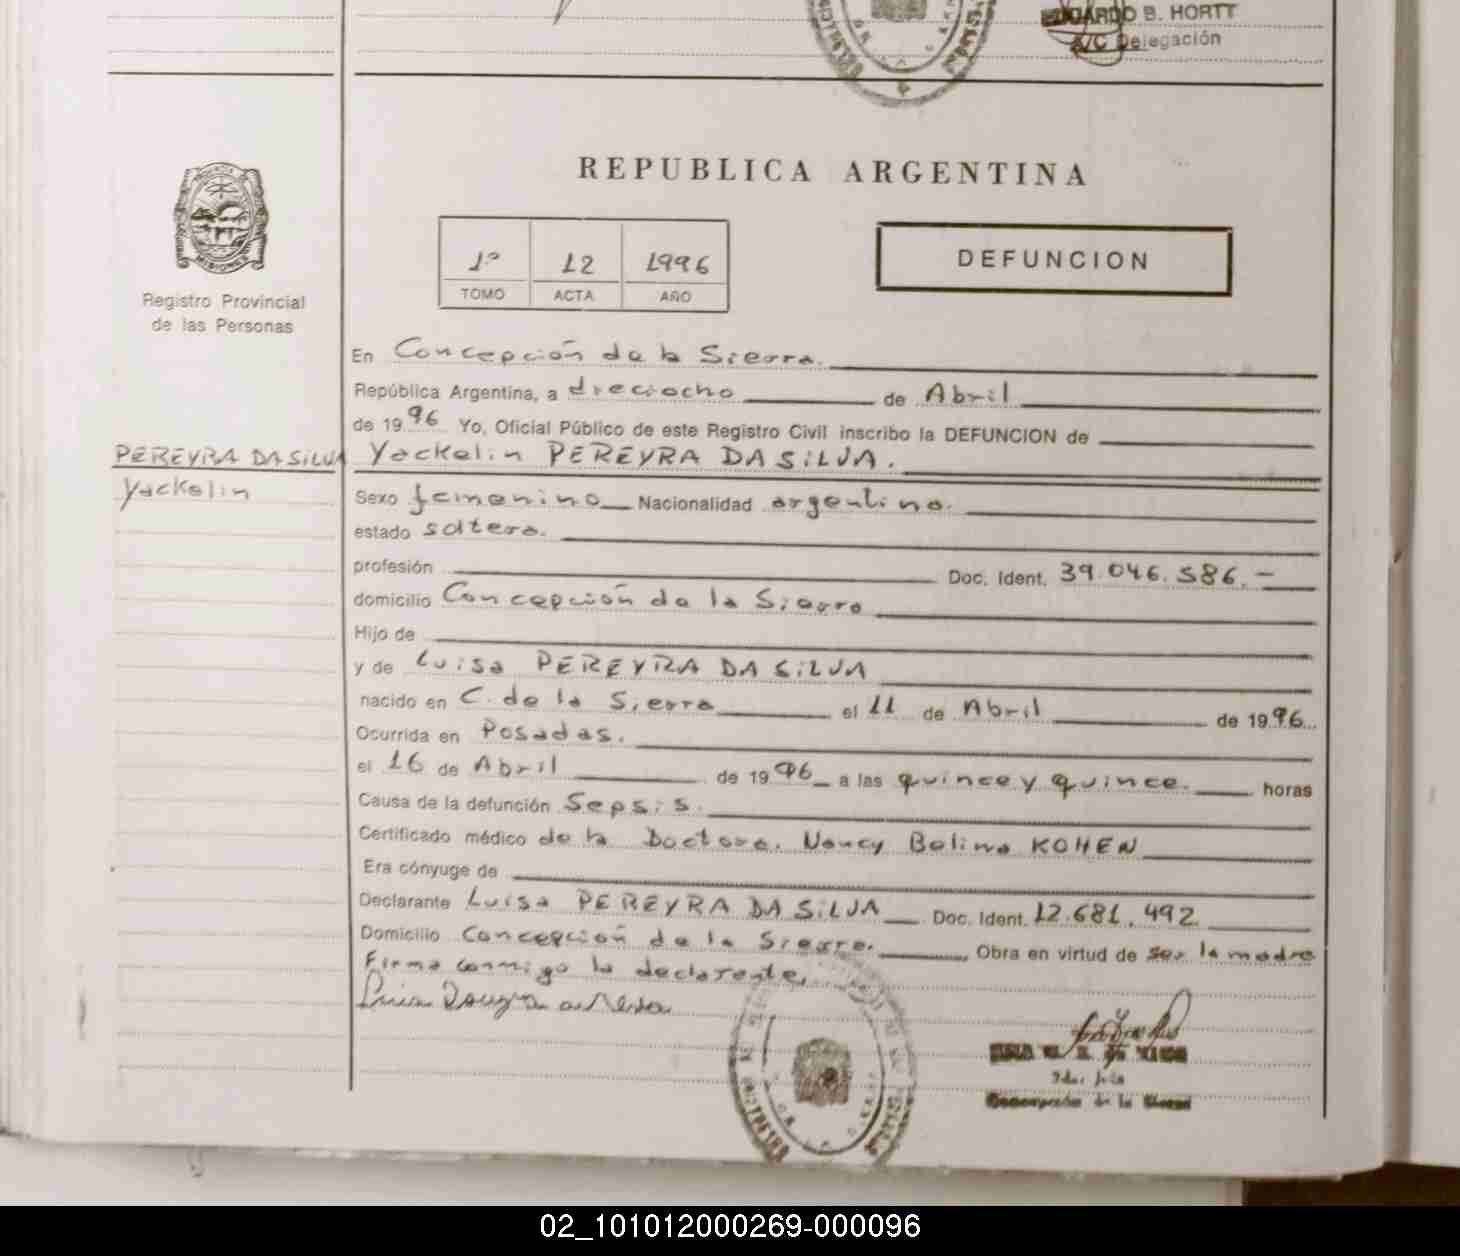 EDGARDO B. HORTT
A/C Delegación
REPUBLICA ARGENTINA
1º 12 1996
TOMO ACTA AÑO
DEFUNCION
MISIONES
Registro Provincial
de las Personas
En Concepción de la Sierra.
República Argentina, a dieciocho de Abril
de 1996 Yo, Oficial Público de este Registro Civil inscribo la DEFUNCION de
PEREYRA DA SILVA
Yackelin
Yackelin PEREYRA DA SILVA.
Sexo femenino Nacionalidad argentina.
estado soltera.
profesión Doc. Ident. 39.046.586.-
domicilio Concepción de la Sierra
Hijo de
y de Luisa PEREYRA DA SILVA
nacido en C. de la Sierra el 11 de Abril de 1996...
Ocurrida en Posadas.
el 16 de Abril de 1996 a las quince y quince. horas
Causa de la defunción Sepsis.
Certificado médico de la Doctora. Nancy Belina KOHEN
Era cónyuge de
Declarante Luisa PEREYRA DA SILVA Doc. Ident. 12.681.492
Domicilio Concepción de la Sierra. Obra en virtud de ser la madre
Firma conmigo la declarante.
Concepción de la Sierra
02_101012000269-000096